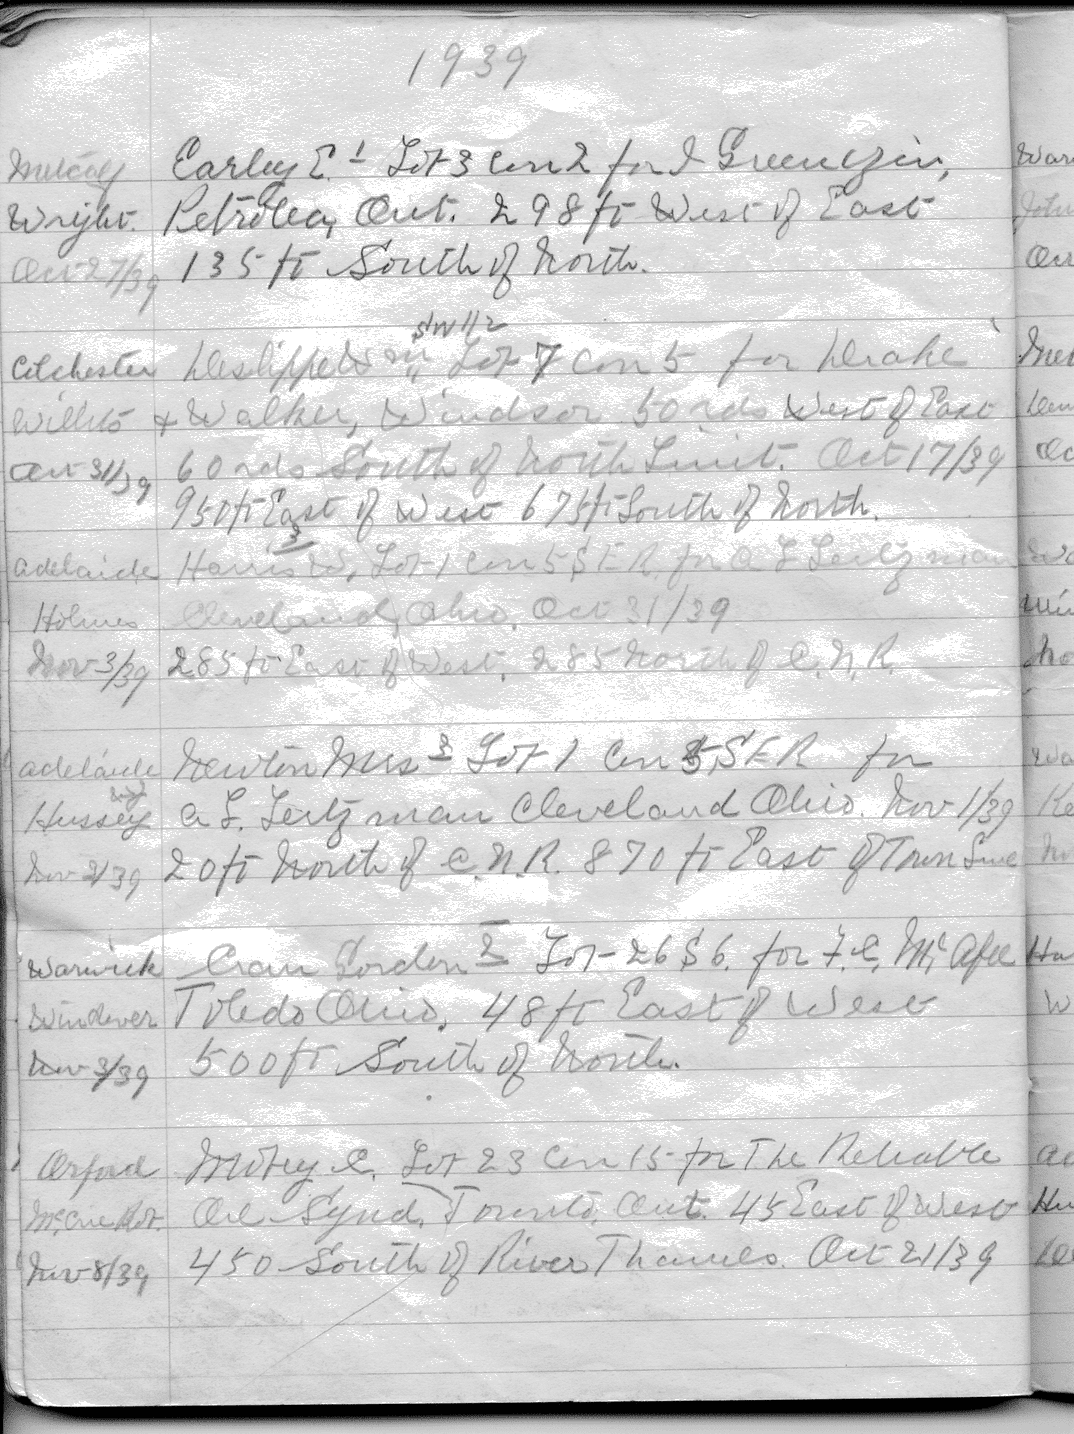 1939
Metcalf Earley E. 1 Lot 3 Con 2 for I Greenizin,
Wright. Petrolea, Ont. 298 ft West of East
Oct 27/39 135 ft South of North.
SW 1/2
Colchester Deslippe W Lot 7 Con 5 for Drake
Willets & Walker, Windsor 50 rds West of East
Oct 31/39 60 rds South of North Limit. Oct 17/39
950 ft East of West 675 ft South of North.
3
Adelaide Harris W, Lot 1 Con 5 S.E.R. for A L Leitzman
Holmes Cleveland, Ohio. Oct 31/39
Nov 3/39 285 ft East of West, 285 North of C.N.R.
Adelaide Newton Mrs 3 Lot 1 Con 5, S E R for
Hussey A L. Leitzman Cleveland Ohio. Nov 1/39
Nov 3/39 20 ft North of C.N.R. 870 ft East of Town Line
Warwick Cran Gordon 2 Lot 26 S 6. for F. C. McAfee
Windover Toledo Ohio. 48 ft East of West
Nov 3/39 500 ft South of North.
Orford Mothey C. Lot 23 Con 15 for The Reliable
Oil Synd, Toronto, Ont. 45 East of West
Nov 8/39 450 South of River Thames. Oct 21/39